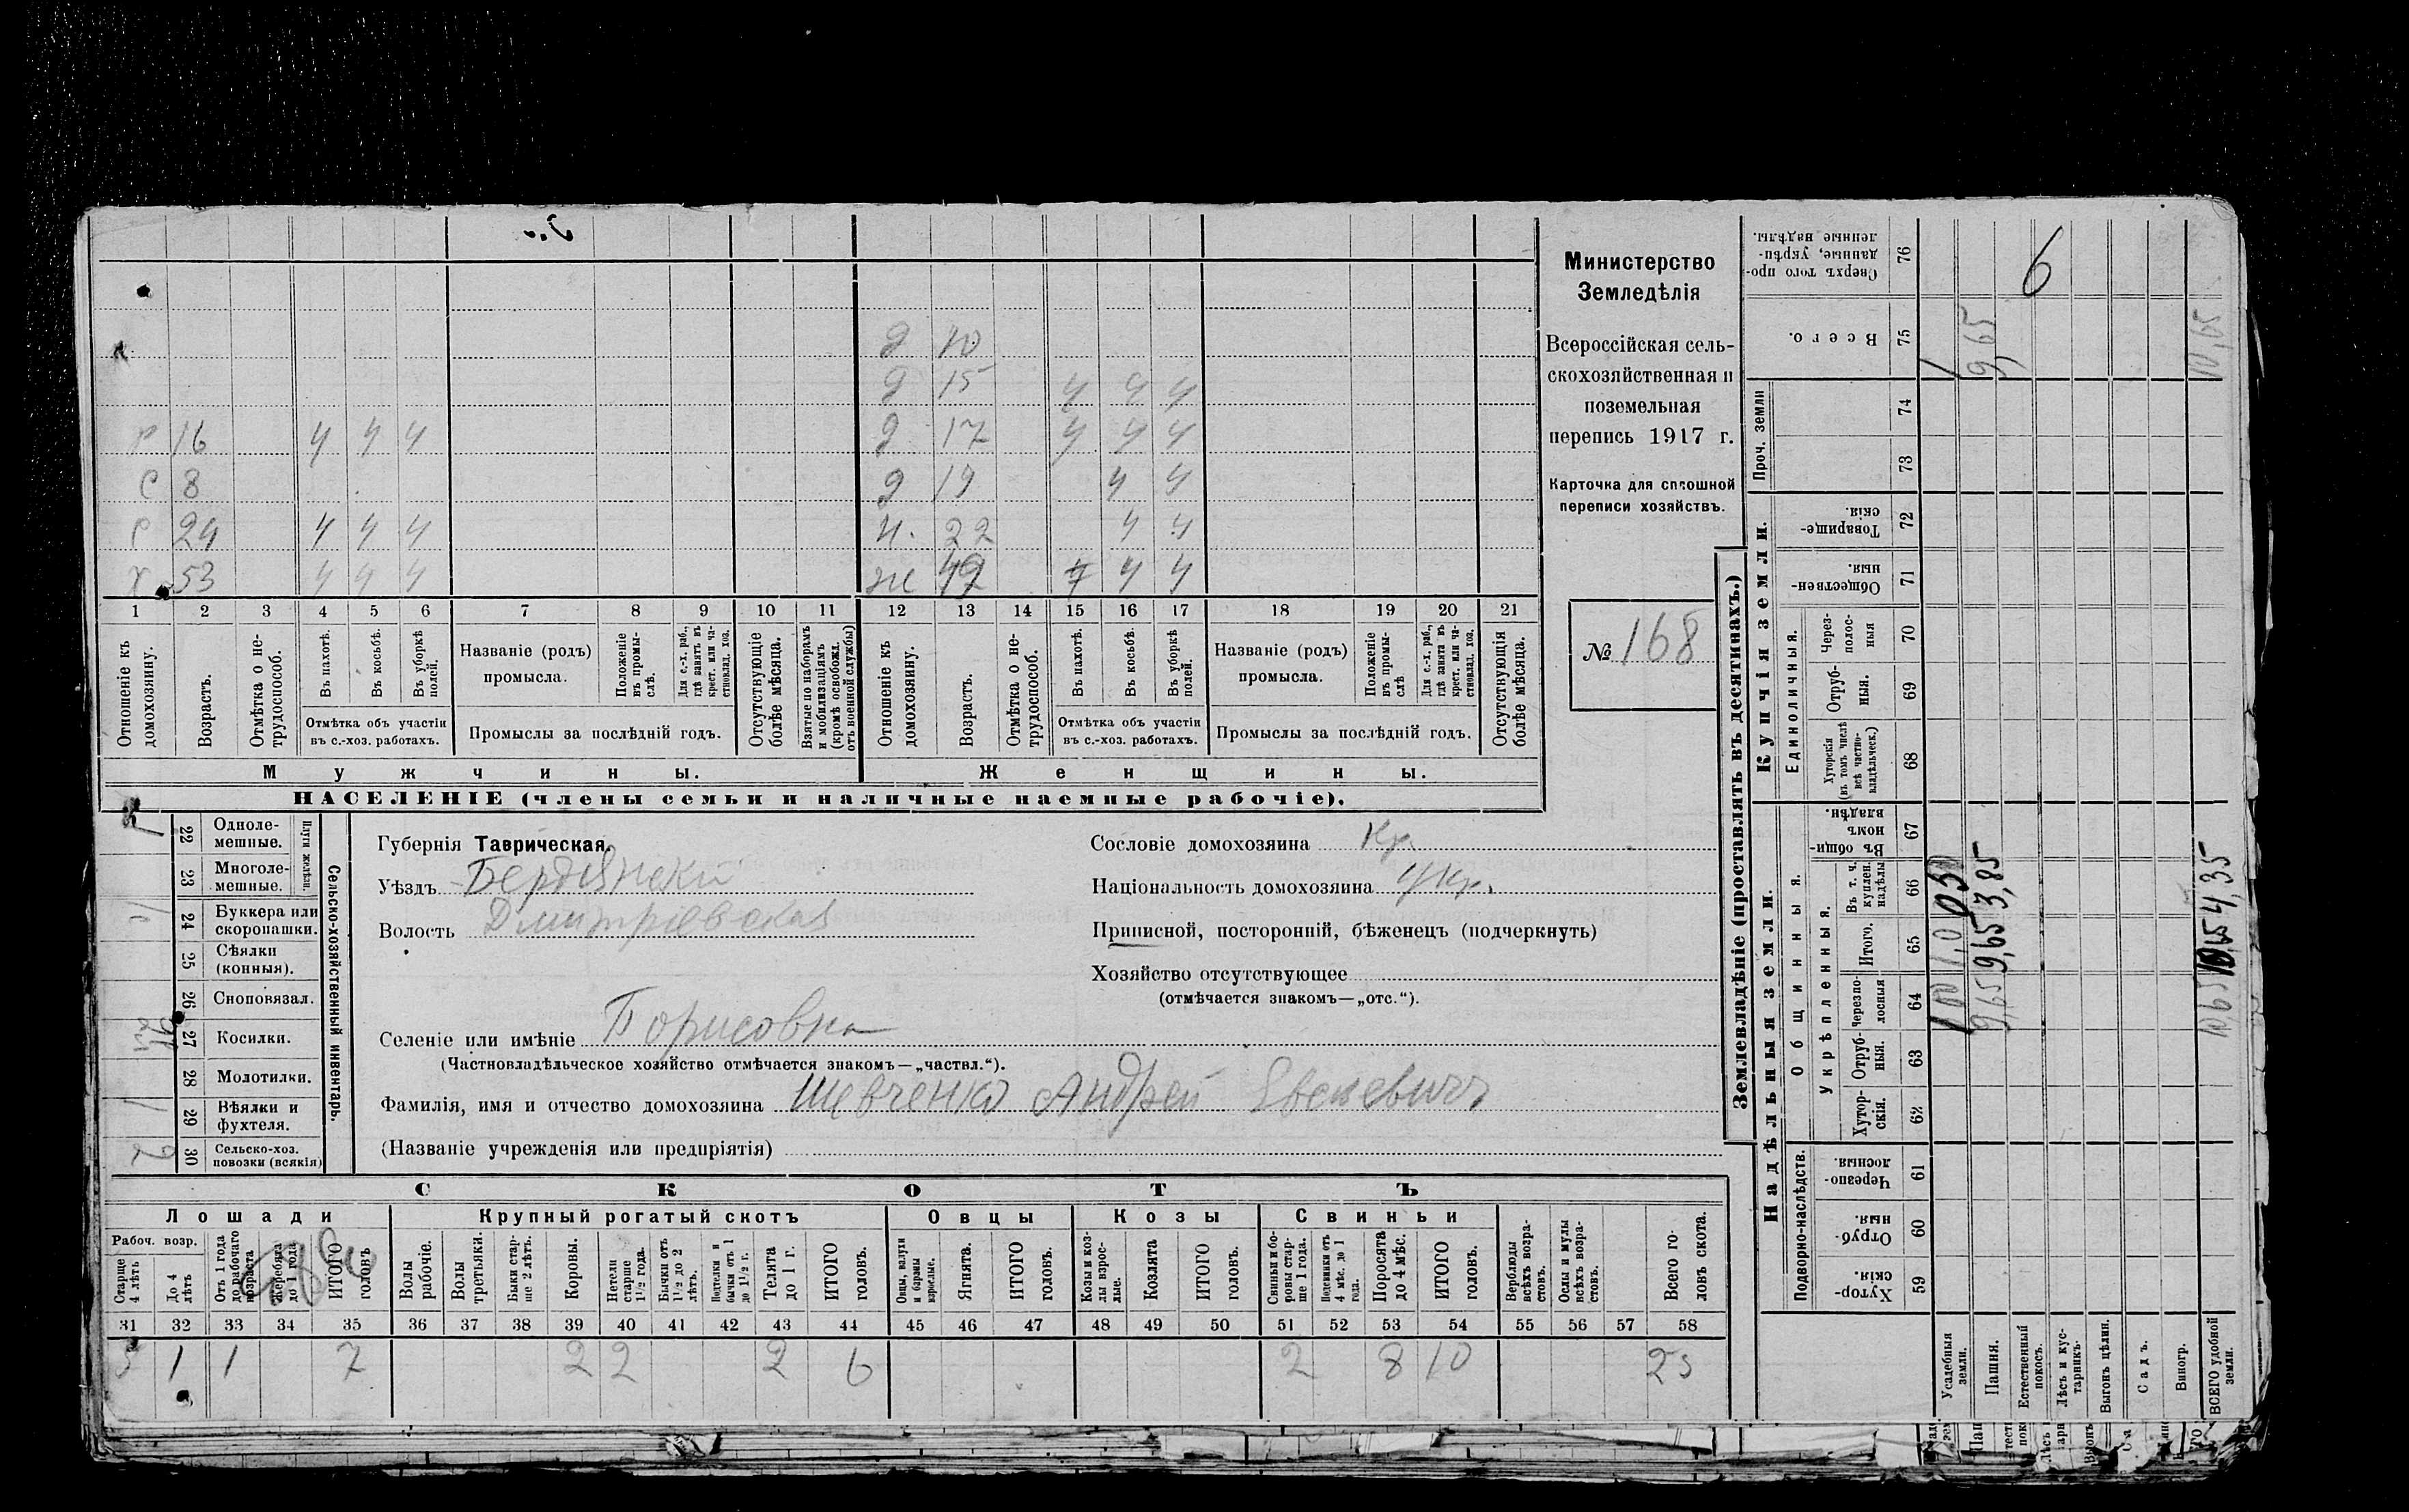 д 10
д 15 ч ч ч
р 16 ч ч ч д 17 ч ч ч
с 8 д 19 ч ч
с 24 ч ч ч н. 22 ч ч
х 53 ч ч ч ж 49 ч ч ч
1 2 3 4 5 6 7 8 9 10 11 12 13 14 15 16 17 18 19 20 21
Отношеніе къ домохозяину.
Возрастъ.
Отмѣтка о не-
трудоспособ.
Въ пахотѣ.
Въ косьбѣ.
Въ уборкѣ
полей.
Отмѣтка объ участіи
въ с.-хоз. работахъ.
Названіе (родъ)
промысла.
Положеніе
въ промы-
слѣ.
Для с.-х. раб.,
гдѣ занятъ въ
крест. или ча-
стновлад. хоз.
Промыслы за послѣдній годъ.
Отсутствующіе
болѣе мѣсяца.
Взятые по наборамъ
и мобилизаціямъ
(кромѣ освобожд.
отъ военной службы)
Отношеніе къ
домохозяину.
Возрастъ.
Отмѣтка о не-
трудоспособ.
Въ пахотѣ.
Въ косьбѣ.
Въ уборкѣ
полей.
Отмѣтка объ участіи
въ с.-хоз. работахъ.
Названіе (родъ)
промысла.
Положеніе
въ промы-
слѣ
Для с.-х. раб.,
гдѣ занята въ
крест. или ча-
стновлад. хоз.
Промыслы за послѣдній годъ.
Отсутствующія
болѣе мѣсяца.
Мужчины.
Женщины.
НАСЕЛЕНІЕ (члены семьи и наличные наемные рабочіе).
Министерство
Земледѣлія
Всероссійская сель-
скохозяйственная и
поземельная
перепись 1917 г.
Карточка для сплошной
переписи хозяйствъ.
№ 168
Сельско-хозяйственный инвентарь.
Плуги желѣзн.
22 Одноле-
мешные.
23 Многоле-
мешные.
24 Буккера или
скоропашки.
25 Сѣялки
(конныя).
26 Сноповязал.
27 Косилки.
28 Молотилки.
29 Вѣялки и
фухтеля.
30 Сельско-хоз.
повозки (всякія)
2
Губернія Таврическая.
Уѣздъ Бердянскій
Волость Дмитріевская
Сословіе домохозяина Кр.
Національность домохозяина Укр.
Приписной, посторонній, бѣженецъ (подчеркнуть)
Хозяйство отсутствующее
(отмѣчается знакомъ—„отс.“).
Селеніе или имѣніе Борисовка
(Частновладѣльческое хозяйство отмѣчается знакомъ—„частвл.“).
Фамилія, имя и отчество домохозяина Шевченко Андрей
(Названіе учрежденія или предпріятія)
СКОТЪ
Лошади
Крупный рогатый скотъ
Овцы
Козы
Свиньи
Рабоч. возр.
Старше
4 лѣтъ
До 4
лѣтъ
Отъ 1 года
до рабочаго
возраста
Жеребята
до 1 года
ИТОГО
головъ
Волы
рабочіе.
Волы
третьяки.
Быки стар-
ше 2 лѣтъ.
Коровы.
Нетели
старше
1½ года.
Бычки отъ
1½ до 2
лѣтъ.
Подтелки и
бычки отъ 1
до 1½ г.
Телята
до 1 г.
ИТОГО
головъ.
Овцы, валухи
и бараны
взрослые.
Ягнята.
ИТОГО
головъ.
Козы и коз-
лы взрос-
лые.
Козлята
ИТОГО
головъ.
Свиньи и бо-
ровы стар-
ше 1 года.
Подсвинки отъ
4 мѣс. до 1
года.
Поросята
до 4 мѣс.
ИТОГО
головъ.
Верблюды
всѣхъ возра-
стовъ.
Ослы и мулы
всѣхъ возра-
стовъ.
Всего го-
ловъ скота.
31 32 33 34 35 36 37 38 39 40 41 42 43 44 45 46 47 48 49 50 51 52 53 54 55 56 57 58
5 1 1 7 2 2 2 6 2 8 10 23
Землевладѣніе (проставлять въ десятинахъ.)
Надѣльныя земли.
Купчія земли.
Проч. земли
Подворно-наслѣдств.
Общинныя.
Укрѣпленныя.
Единоличныя.
Сверхъ того про-
данные, укрѣп-
ленные надѣлы.
76
6
Всего.
75
1
9,65
10,65
74
73
Товарище-
скія.
72
Обществен-
ныя.
71
Через-
полос-
ныя
70
Отруб-
ныя.
69
Хуторскія
(въ томъ числѣ
всѣ частно-
владѣльческ.)
68
Въ общин-
номъ
владѣн.
67
Въ т. ч.
куплен.
надѣлы
66
3,85
4,35
Итого.
65
1,0
9,65
10,65
Черезпо-
лосныя
64
9,65
10,65
Отруб-
ныя.
63
Хутор-
скія.
62
Черезпо-
лосныя.
61
Отруб-
ныя.
60
Хутор-
скія.
59
Усадебныя
земли.
Пашня.
Естественный
покосъ.
Лѣсъ и кус-
тарникъ.
Выгонъ цѣлин.
Садъ.
Виногр.
ВСЕГО удобной
земли.